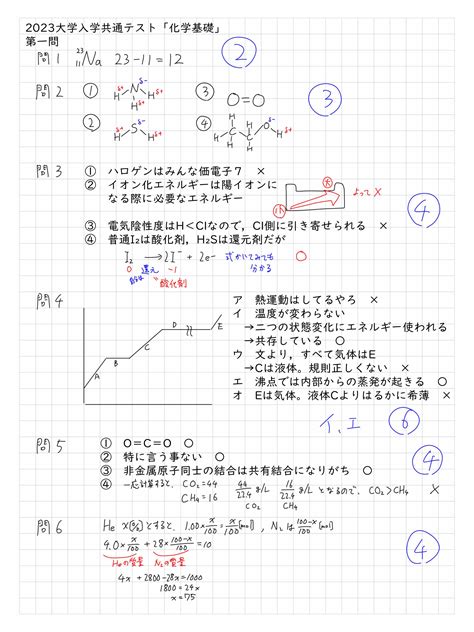 2023大学入学共通テスト「化学基礎」
第一問
問1 23 11 Na 23-11=12 ②
問2 ① H N H H δ+ δ- δ+ ③ O=O ③
② H S H δ+ δ- δ+ ④ H C C O H δ- δ+
問3 ① ハロゲンはみんな価電子7 ×
② イオン化エネルギーは陽イオンに
なる際に必要なエネルギー 小 大 よって×
③ 電気陰性度はH<Clなので，Cl側に引き寄せられる ×
④ 普通I₂は酸化剤，H₂Sは還元剤だが ④
I₂ → 2I⁻ + 2e- 式かいてみても ○
0 還元 -1 分かる
酸化剤
問4 ア 熱運動はしてるやろ ×
イ 温度が変わらない
→二つの状態変化にエネルギー使われる
→共存している ○
ウ 文より，すべて気体はE
→Cは液体。規則正しくない ×
エ 沸点では内部からの蒸発が起きる ○
オ Eは気体。液体Cよりはるかに希薄 ×
A B C D E
イ，エ ⑥
問5 ① O=C=O ○
② 特に言う事ない ○
③ 非金属原子同士の結合は共有結合になりがち ○ ④
④ 一応計算すると，CO₂=44 44/22.4 g/L 16/22.4 g/L となるので，CO₂>CH₄ ×
CH₄=16
問6 He x(%)とすると，1.00×x/100=x/100[mol]，N₂は100-x/100[mol]
4.0×x/100+28×100-x/100=10 ④
Heの質量 N₂の質量
4x+2800-28x=1000
1800=24x
x=75